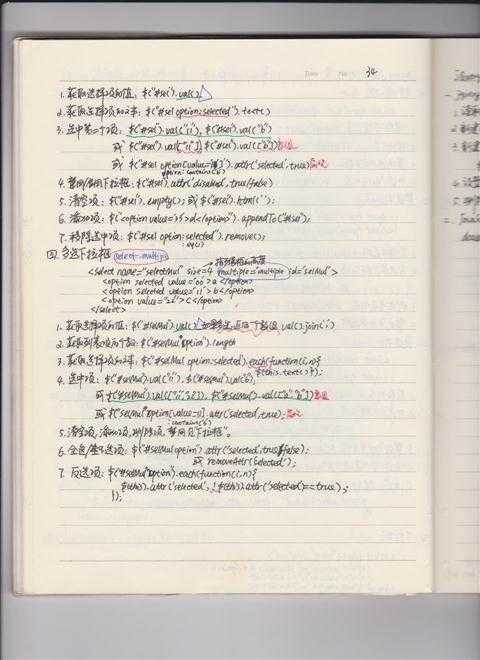 Date No 34
1. 获取选择项的值: $("#sel").val();
2. 获取选择项的文本: $("#sel option:selected").text()
3. 选中第二个项: $("#sel").val("11"), $("#sel").val("b")
或 $("#sel").val(["11"]), $("#sel").val(["b"])
或 $("#sel option[value=11]").attr('selected', true)
option:contains(b)
4. 禁用/启用下拉框: $("#sel").attr('disabled', true/false)
5. 清空项: $("#sel").empty(); 或 $("#sel").html('');
6. 添加项: $("<option value='33'>d</option>").appendTo("#sel");
7. 移除选中项: $("#sel option:selected").remove();
四. 多选下拉框 select-multiple
<select name="selectMul" size=4 multiple="multiple" id="selMul">
<option selected value="00">a</option>
<option selected value="11">b</option>
<option value="22">c</option>
</select>
1. 获取选择项的值: $("#selMul").val() 如果多选, 返回一个数组 val().join(',')
2. 获取列表项的个数: $("#selMul option").length
3. 获取选择项的文本: $("#selMul option:selected").each(function(i,n){
$(this).text(); });
4. 选中项: $("#selMul").val("11"), $("#selMul").val("b"),
或 $("#selMul").val(["11","22"]), $("#selMul").val(["a","b"])
或 $("#selMul option[value=11]").attr('selected', true);
:contains(b)
5. 清空项, 添加项, 删除项, 禁用 见"下拉框"。
6. 全选/全不选项: $("#selMul option").attr('selected', true/false);
或 removeAttr('selected');
7. 反选项: $("#selMul option").each(function(i,n){
$(this).attr('selected', !$(this).attr('selected')==true);
});